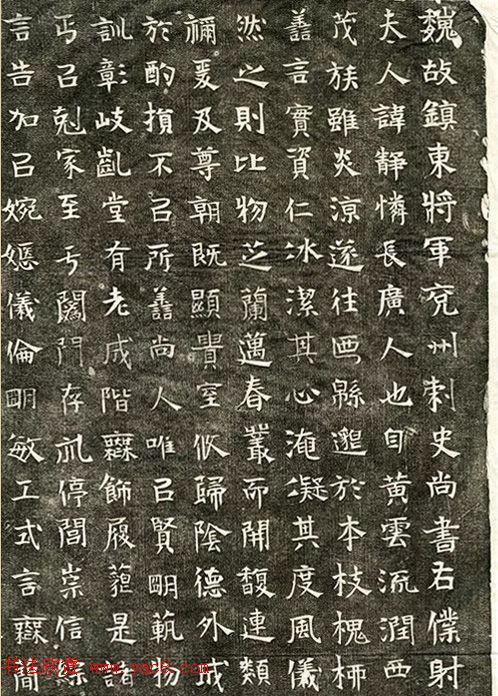 魏故鎮東將軍兗州刺史尚書右僕射
夫人諱靜憐長廣人也自黃雲流潤西
茂族雖炎涼遂往緜邈於本枝槐
善言實資仁冰潔其心淹凝其度風儀
然之則比物芝蘭邁春叢而開馥連類
禰爰及尊朝既顯貴室攸歸陰德外
於酌損不以所善尚人唯以賢明範物
訓彰岐凱堂有老成階無飾履是諸
以尅家至于闔門存停閭崇信
言告加以婉嫕儀倫明敏工式言無間
书法欣赏 www.yac8.com